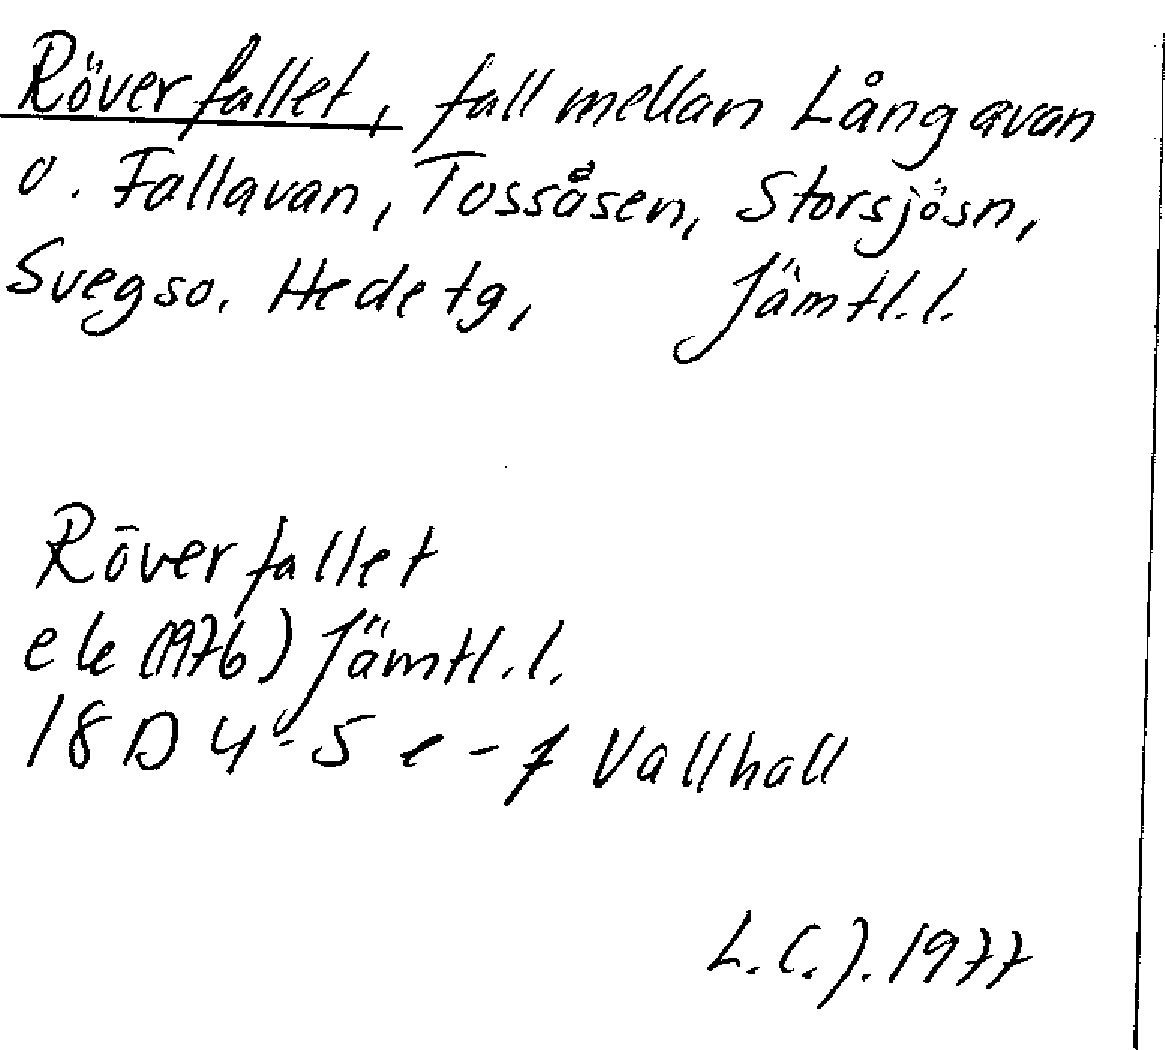 Röverfallet, fall mellan Långavan
o. Fallavan, Tossåsen, Storsjösn,
Svegso. Hedetg, Jämtl.l.
Röverfallet
ek (1976) Jämtl.l.
18D 4-5 e-f Vallhall
L.C.J. 1977